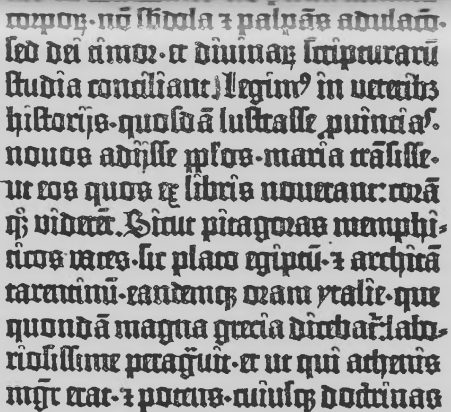 corporꝫ · nō sßdola ⁊ palpās adulacō ·
sed dei timor · et diuinaꝝ scripturarū
studia conciliant) Legimꝰ in veteribꝫ
historijs · quosdā lustrasse ꝓuincias ·
nouos adijsse ppłos · maria trāsisse ·
ut eos quos eꝫ libris nouerant : corā
qꝫ viderēt. Sicut pitagoras memphi⸗
ticos vates · sic plato egiptū · ⁊ architā
tarentinū · eandemqꝫ oram ytalie · que
quondā magna grecia dicebať : labo⸗
riosissime peragᷓuit · et ut qui athenis
mgr̄ erat · ⁊ potens · cuiusqꝫ doctrinas